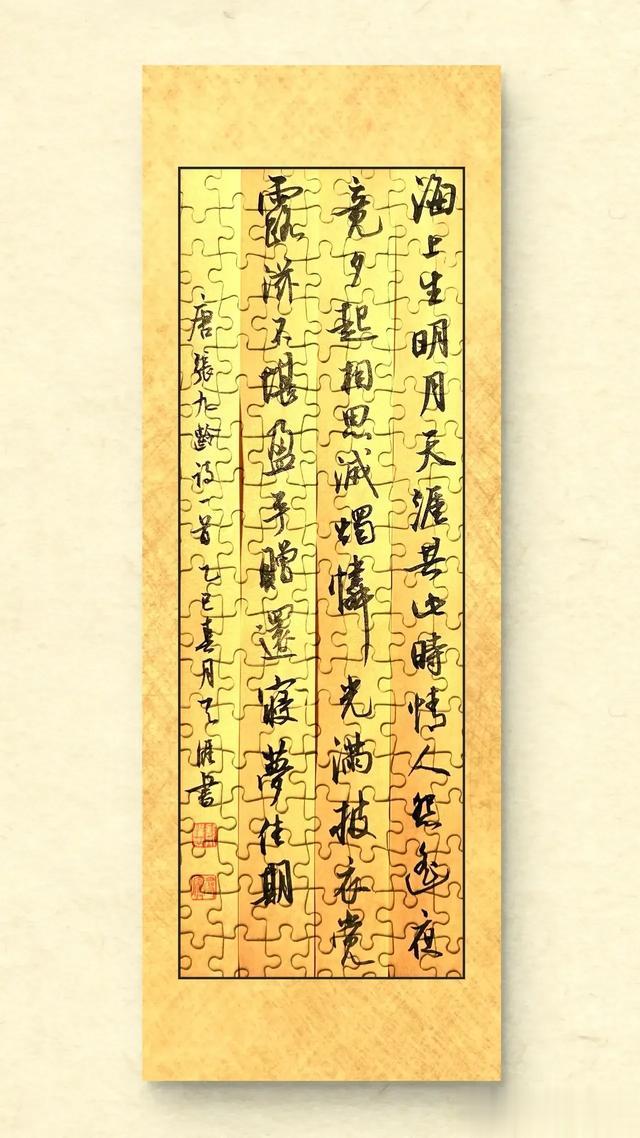 海上生明月天涯共此時情人怨遙夜
竟夕起相思滅燭憐光滿披衣覺
露滋不堪盈手贈還寢夢佳期
唐張九齡詩一首乙巳春月天涯書